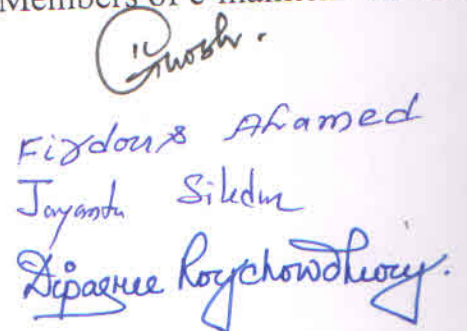 Members of
Ghosh.
Firdous Ahamed
Jayanta Sikdar
Dipasree Roychowdhury.